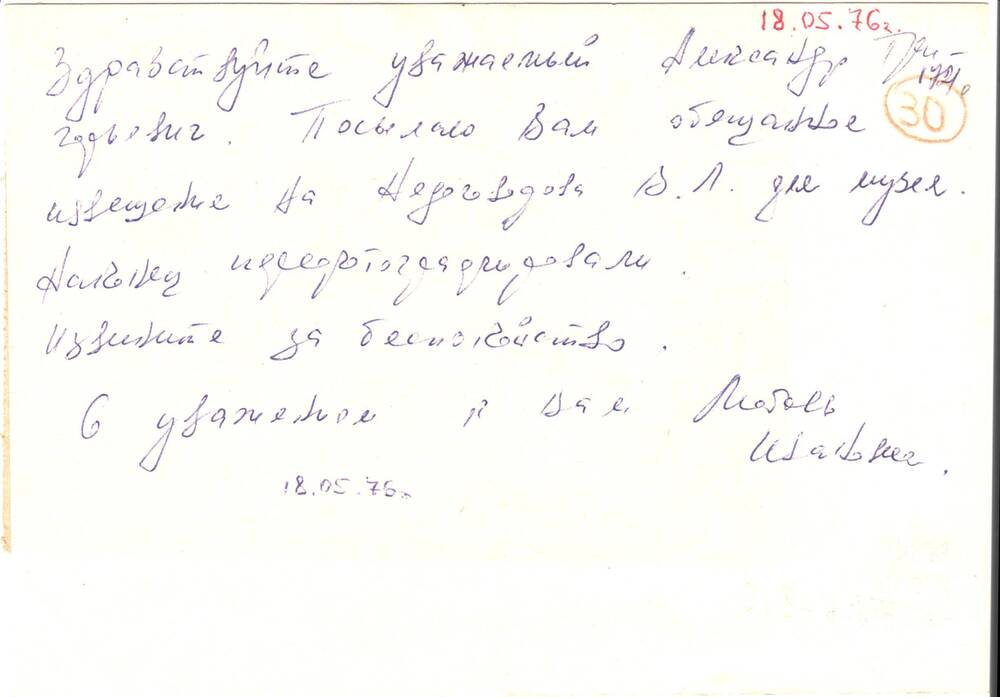 18.05.76г.
Здравствуйте уважаемый Александр Гри-
горьевич. Посылаю Вам обещанное
30
извещение на Недоговодова В. Л. для музея.
Наконец пересфотографировали.
Извините за беспокойство.
С уважением к Вам Любовь
Ивановна.
18.05.76г.